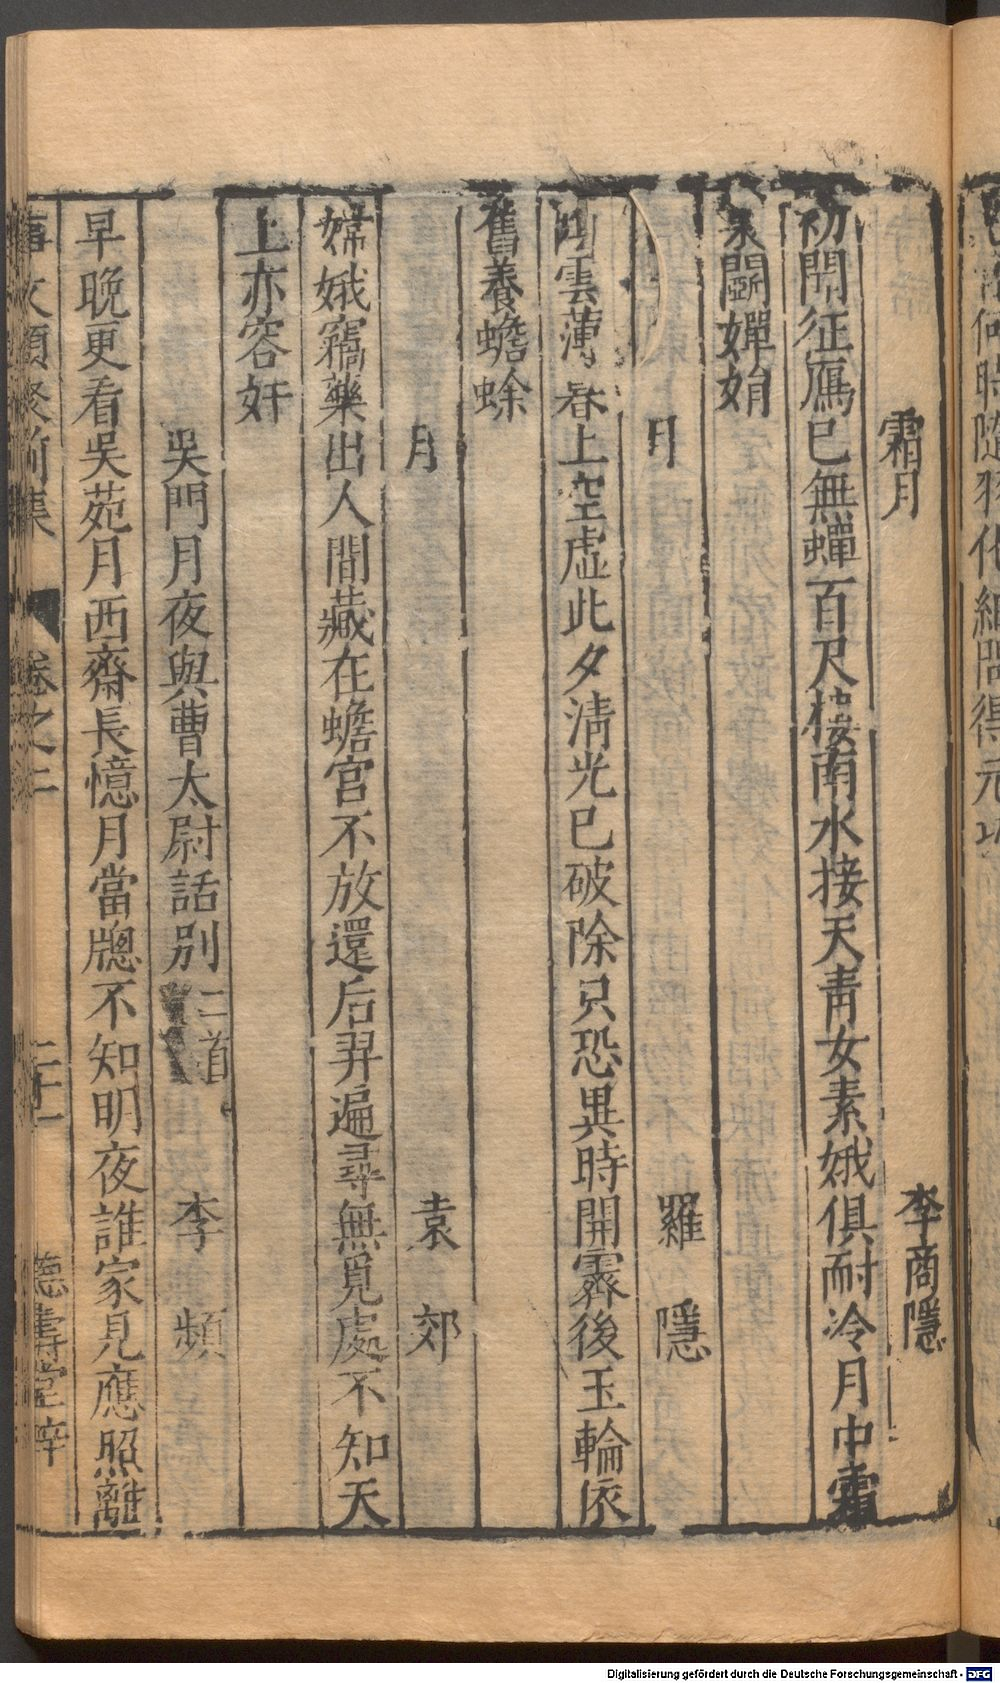 霜月　李商隱
初聞征鴈已無蟬百尺樓南水接天青女素娥俱耐冷月中霜
裏鬭嬋娟
月　羅隱
雲薄上空虛此夕清光已破除只恐異時開霽後玉輪依
舊養蟾蜍
月　袁郊
嫦娥竊藥出人間藏在蟾宮不放還后羿遍尋無覓處不知天
上亦容奸
吳門月夜與曹太尉話別二首　李頻
早晚更看吳苑月西齋長憶月當牕不知明夜誰家見應照離
事文類聚前集　卷之二　二十一　德壽堂梓
Digitalisierung gefördert durch die Deutsche Forschungsgemeinschaft - DFG